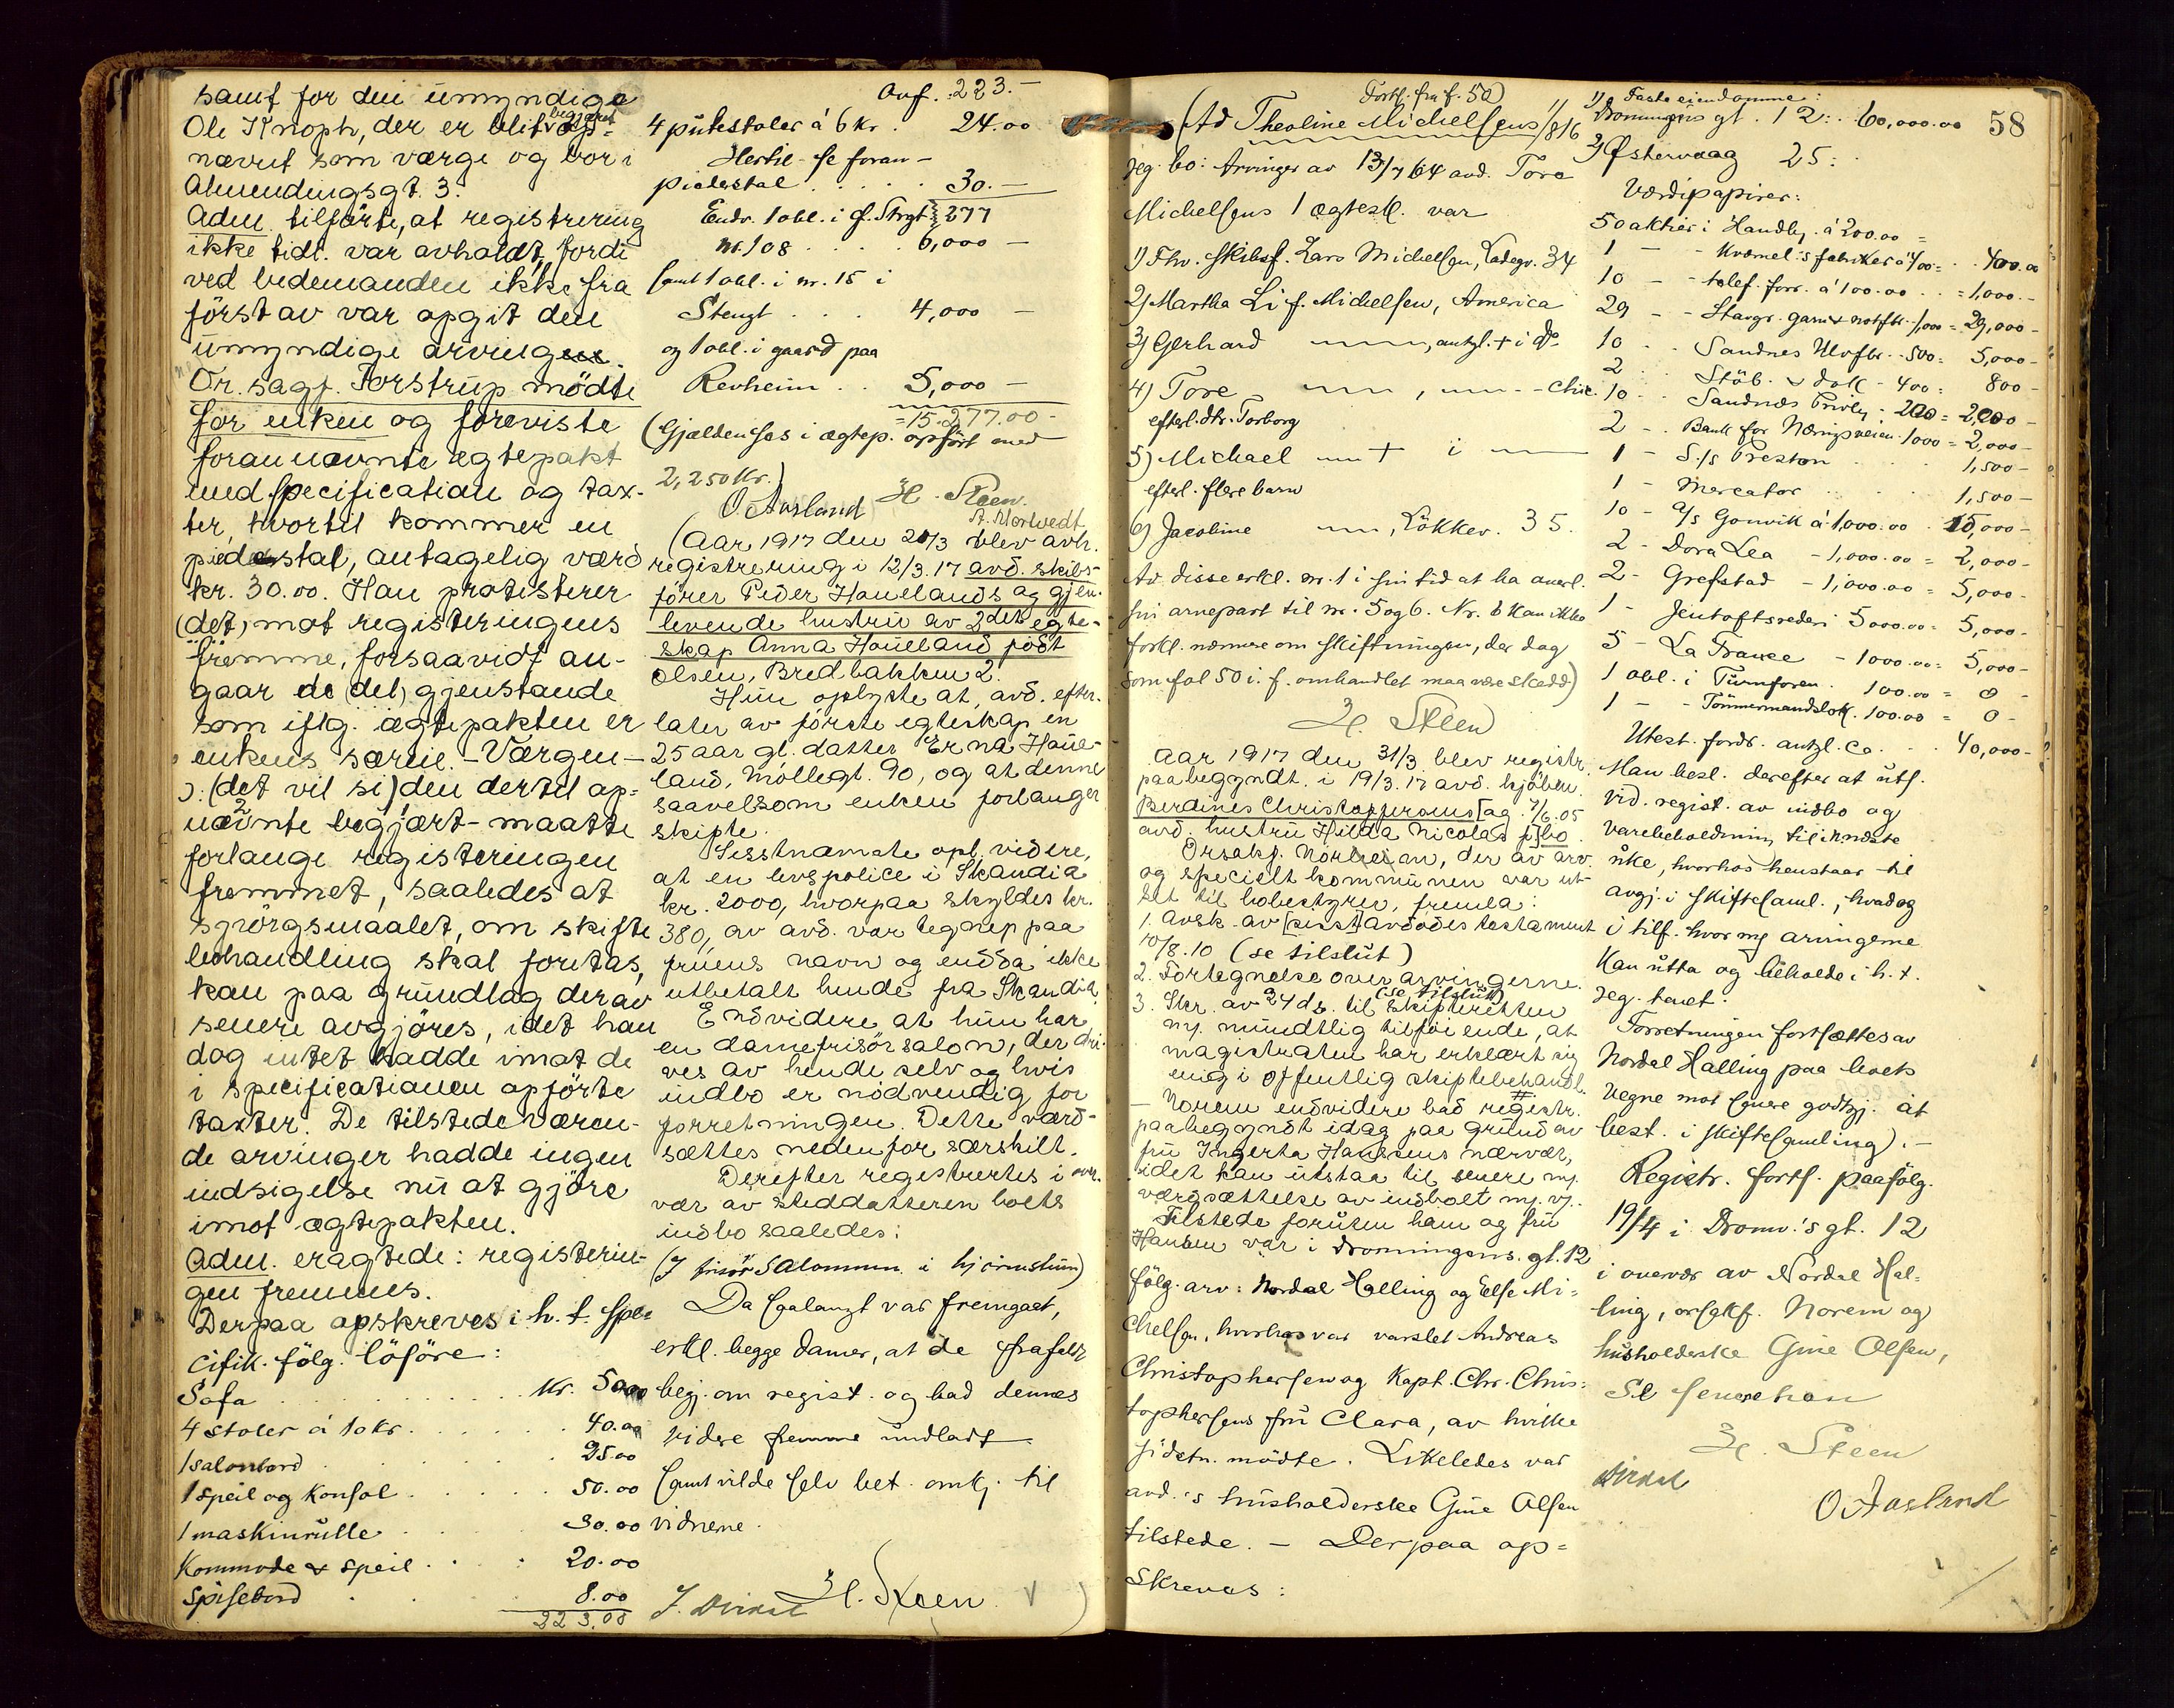 samt for den umyndige
Ole Knoph, der er blit begjært op-
nævnt som værge og bor i
Almendingsgt. 3.
Adm. tilførte, at registrering
ikke tidl. var avholdt, fordi
ved bedemanden ikke fra
først av var opgit den
umyndige arvinger.
Or. sagf. Torstrup mødte
for enken og foreviste
forannævnte egtepakt
med specification og tax-
ter, hvortil kommer en
piedestal, antagelig værd
kr. 30.00. Han protisterer
(det) mot registeringens
fremme, forsaavidt an-
gaar de (det) gjenstande
som iflg. ægtepakten er
enkens særeie. - Værgen -
ɔ: (det vil si) den dertil op-
nævnte begjært - maatte
forlange registeringen
fremmet, saaledes at
spørgsmaalet, om skifte
behandling skal foretas,
kan paa grundlag derav
senere avgjøres, idet han
dog intet hadde imot de
i specificationen opførte
taxter. De tilstedeværen-
de arvinger hadde ingen
indsigelse nu at gjøre
imot ægtepakten.
Adm. eragtede: registerin-
gen fremmes.
Derpaa opskreves i h. t. spe-
cifik. følg. løsøre:
Sofa . . . . . Kr. 50.00
4 stoler á 10 kr. . . . . 40.00
1 salonbord . . . . 25.00
1 speil og konsol . . . . 50.00
1 maskinrulle . . . . 30.00
Kommode & speil . . . . 20.00
Spisebord . . . 8.00
223.00
Ovf. 223.-
4 pütestoler á 6 kr. . 24.00
Hertil - se foran -
piedestal . . . . . 30.-
Endv. 1 obl. i gl. Strgt 277
nr. 108 . . . . 6,000 -
samt 1 obl. i nr. 15 i
Stengt . . . 4,000 -
og 1 obl. i gaard paa
Revheim . . 5,000 -
= 15.277.00 -
(Gjælden sees i ægtep. opført med
2,250 Kr.)
O. Aasland H. Steen
(Aar 1917 den 20/3 blev avh.
registrering i 12/3. 17 avd. skibs-
fører Peder Hauelands og gjen-
levende hustru av 2det egte-
skap Anna Haueland født
Olsen, Bredbakken 2.
Hun oplyste at, avd. efter-
later av første egteskap en
25 aar gl. datter Erna Haue-
land, Møllegt. 90, og at denne
saavelsom enken forlanger
skifte.
Sisstnævnte opl. videre,
at en livspolice i Skandia
kr. 2000, hvorpaa skyldes kr.
380, av avd. var tegnet paa
fruens navn og endda ikke
utbetalt hende fra Skandia.
Endvidere at hun har
en damefrisørsalon, der dri-
ves av hende selv og hvis
indbo er nødvendig for
forretningen. Dette værd-
sættes nedenfor særskilt.
Derefter registrertes i over-
vær av steddatteren boets
indbo saaledes:
(I frisørsalonnen i hjørnestuen)
Da saalangt var fremgaat,
erkl. begge damer, at de frafaldt
begj. om regist. og bad dennes
videre fremme undladt
samt vilde selv bet. omk. til
vidnerne.
J. Dirdal H. Steen
58
Fortf. fra f. 50)
(Ad Theoline Michelsens 1/8 16
jeg. bo: Arvinger av 13/7 64 avd. Tore
Michelsens 1 ægtesk. var
1) Fhv. skibsf. Lars Michelsen, Ladegv. 34
2) Martha Li f. Michelsen, America
3) Gerhard —"—, antgl. + i do
4) Tore —"—, —"— - Chic.
efterl. dtr. Torborg
5) Michael —"— + i —"—
efterl. flere barn
6) Jacobine —"—, Løkkev. 35.
Av disse erkl. nr. 1 i sin tid at ha overl.
sin arvepart til nr. 5 og 6. Nr. 6 kan ikke
forkl. nærmere om skiftningen, der dog
som fol 50 i. f. omhandlet maa være skedd)
H. Steen
Aar 1917 den 31/3 blev registr.
paabegyndt i 19/3. 17 avd. kjøbm.
Perdines Christophersens [og 7/6. 05
avd. hustru Hilda Nicolas f] bo.
Orsakf. Norheim, der av arv.
og specielt kommunen var ut-
set til bobestyrer, fremla:
1. Avsk. av [sisst] avdødes testament
10/8. 10 (se tilslut)
2. Fortegnelse over arvingerne.
(se tilslut)
3. Skr. av 24 ds. til skifteretten
mp. mundtlig tilføiende, at
magistraten har erklært sig
enig i offentlig skiftebehandl.
— Norem endvidere bad registr.
paabegyndt idag paa grund av
fru Ingerta Hansens nærvær,
idet kan utstaa til senere mp.
værdsættelse av indboet mp. vj.
Tilstede foruten ham og fru
Hansen var i Dronningens gt. 12
følg. arv: Nordal Halling og Else Mi-
chelsen, hvorhos var varslet Andreas
Christophersen og Kapt. Chr. Chris-
tophersens fru Clara, av hvilke
sidstn. mødte. Likeledes var
avd.'s husholderske Gine Olsen
tilstede. - Derpaa op-
skreves:
1) Faste eiendomme:
Dronningens gt. 12: 60,000.00
2) Østervaag 25:
Værdipapirer:
50 aktier i Handlb. á 200.00 =
1 — - Kværnel's fabrikker á 400 = . . 400.00
10 — - telef. forr. á 100.00 . . = 1,000.-
29 — - Stavgr. garn & notfbr. 1,000 = 29,000 -
10 . . Sandnes Ulvfbr. . 500 = 5,000 -
2 . . Støb. & dok - 400 = 800 -
10 . . Sandnes Privb. - 200 = 2,000 -
2 - . Bank for Næringsveien 1000 = 2,000 -
1 - S./s Preston . . . 1,500 -
1 - Mercator . . . 1,500 -
10 - a/s Gonvik á 1,000.00 . 15,000 -
2 - Dora Lea - 1,000.00 = 2,000 -
2 - Grefstad - 1,000.00 = 5,000 -
1 - Jentoftsrederi 5000.00 = 5,000 -
5 - La France - 1000.00 = 5,000 -
1 obl. i Turnforen. 100.00 = 0 -
1 — - Tømmermandslok. 100.00 = 0 -
Utest. fordr. antgl. ca. . . 40,000 -
Man besl. derefter at uts.
vid. regist. av indbo og
varebeholdning til næste
uke, hvorhos henstaar til
avgj. i skiftesaml., hvad og
i tilf. hvor mg arvingerne
kan utta og beholde i h. t.
jeg. tenet.
Forretningen fortsættes av
Nordal Halling paa boets
vegne mot senere godtgj. at
best. i skiftesamling). -
Registr. forts. paafølg.
19/4 i Dronn.'s gt. 12
i overvær av Nordal Hal-
ling, orsakf. Norem og
husholderske Gine Olsen,
Se senere her
H. Steen
Dirdal
O Aasland